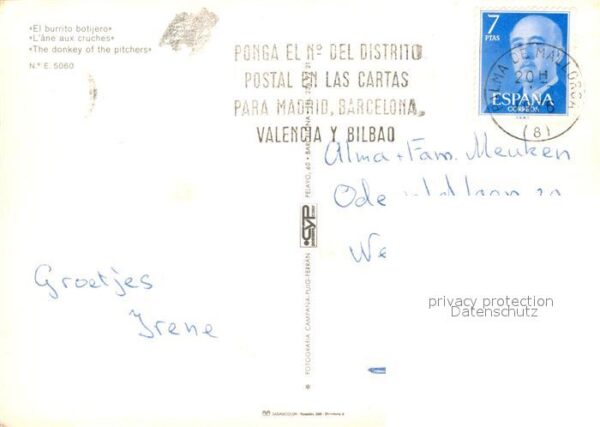 «El burrito botijero»
«L'âne aux cruches»
«The donkey of the pitchers»
N.º E. 5060
PONGA EL Nº DEL DISTRITO
POSTAL EN LAS CARTAS
PARA MADRID, BARCELONA,
VALENCIA Y BILBAO
7
PTAS
ESPAÑA
CORREOS
PALMA DE MALLORCA
20H
(8)
Alma + Fam. Meuken
We
Groetjes
Irene
CYP
PELAYO, 60 • BARCELONA
FOTOGRAFIA CAMPAÑA-PUIG-FERRAN
privacy protection
Datenschutz